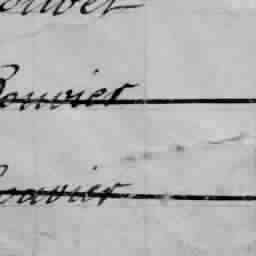 Bouvet
Bouvier
Bouvier